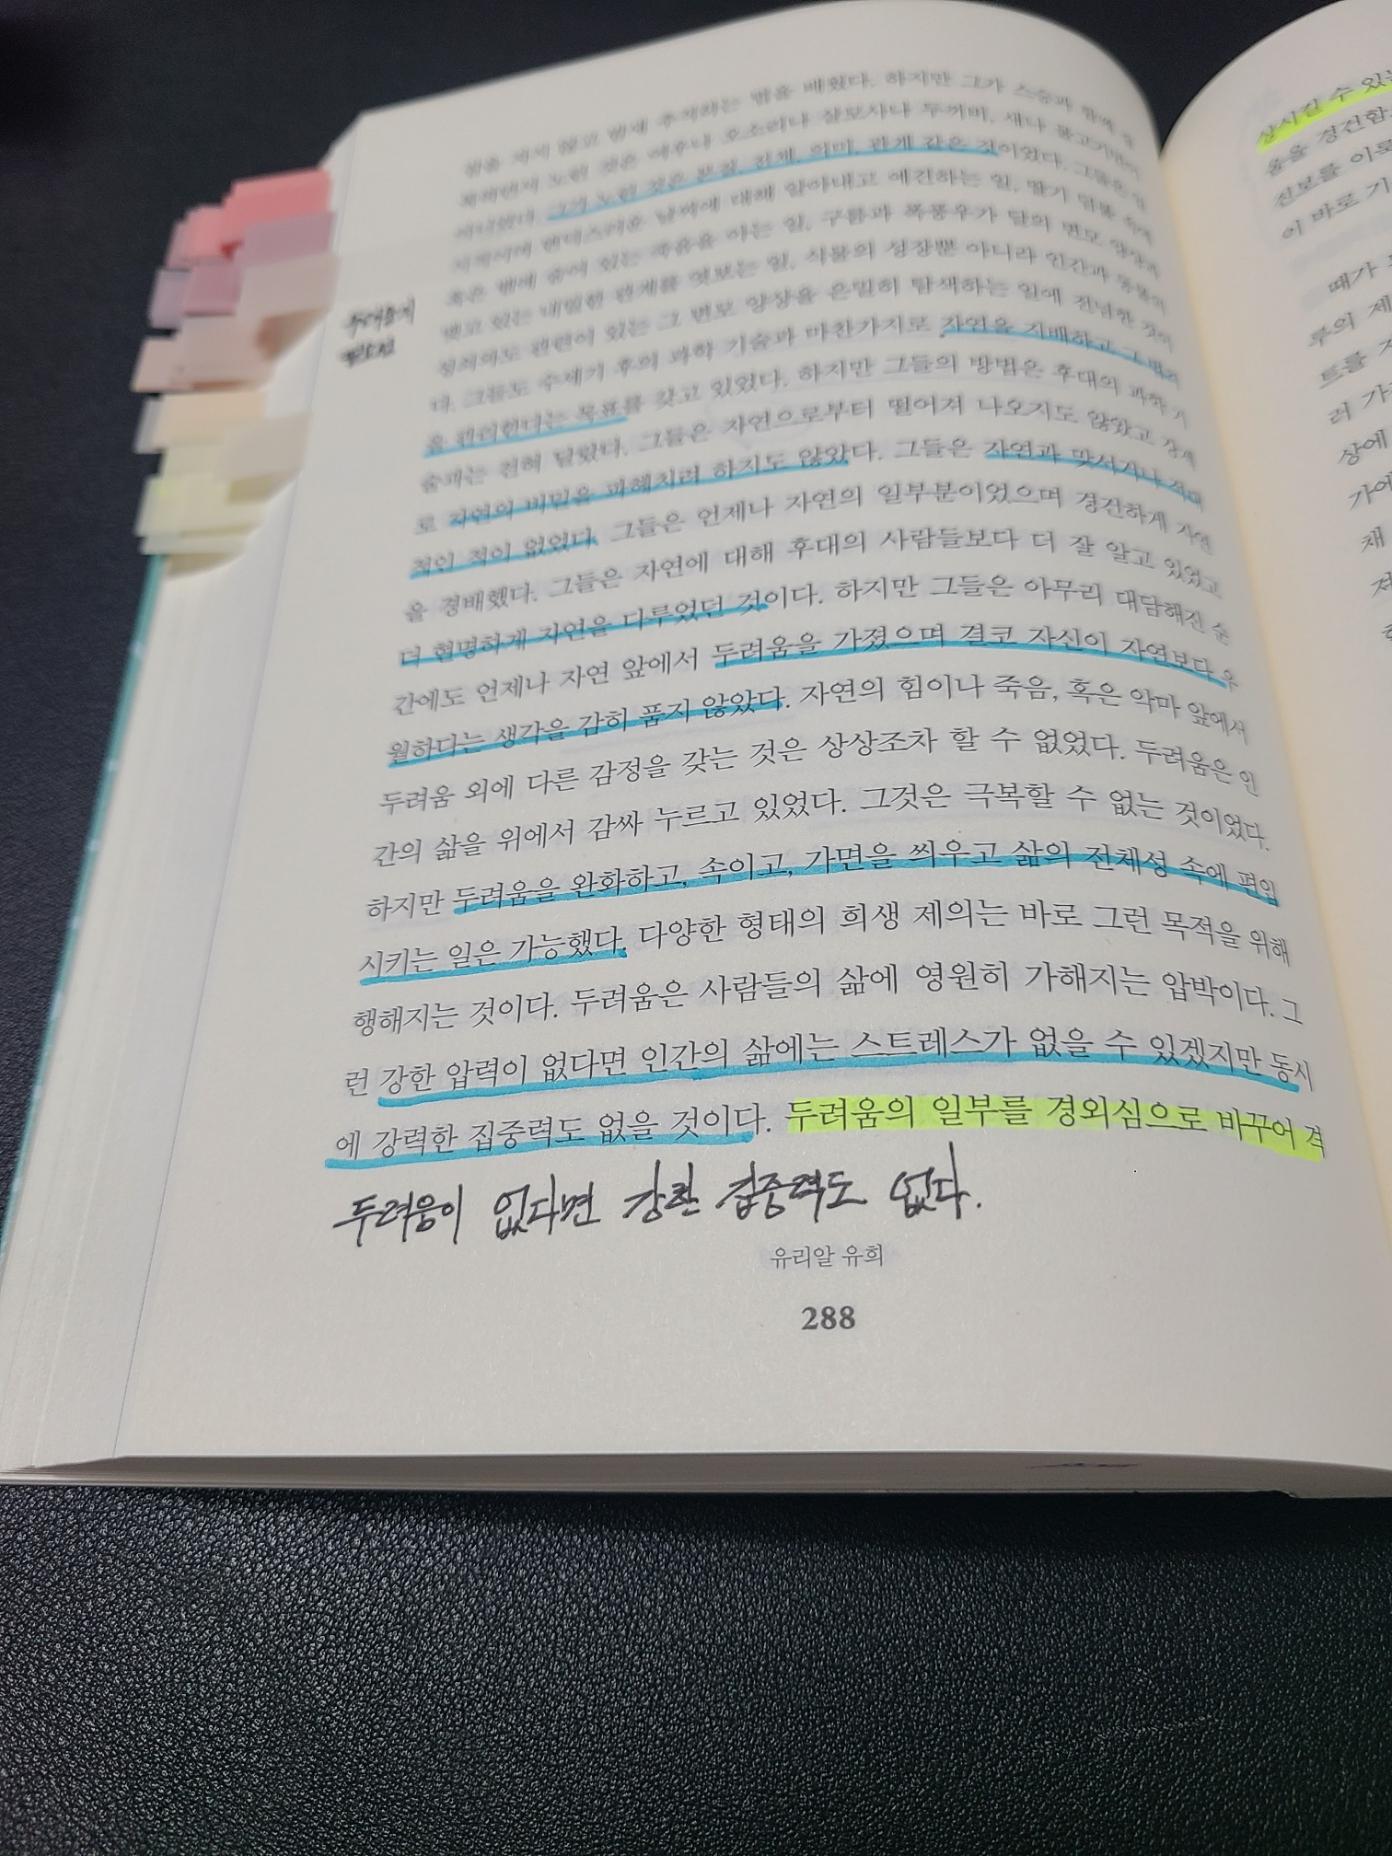 법을 배웠다. 하지만 그가 스승과 함께
노린 것은 여우나 오소리나 살모사나 두꺼비, 새나 물고기만이
아니었다. 그가 노린 것은 본질, 전체, 의미, 관계 같은 것이었다. 그들은
날씨에 대해 알아내고 예견하는 일, 딸기 덤불 속에
혹은 뱀에 숨어 있는 죽음을 아는 일, 구름과 폭풍우가 달의 면모
맺고 있는 내밀한 관계를 엿보는 일, 식물의 성장뿐 아니라 인간과 동물의
관련이 있는 그 면모 양상을 은밀히 탐색하는 일에 전념한 것이
다. 그들도 수세기 후의 과학 기술과 마찬가지로 자연을 지배하고 그 법칙
을 관리한다는 목표를 갖고 있었다. 하지만 그들의 방법은 후대의 과학 기
술과는 전혀 달랐다. 그들은 자연으로부터 떨어져 나오지도 않았고 강제
로 자연의 비밀을 파헤치려 하지도 않았다. 그들은 자연과 맞서거나 적대
적인 적이 없었다. 그들은 언제나 자연의 일부분이었으며 경건하게 자연
을 경배했다. 그들은 자연에 대해 후대의 사람들보다 더 잘 알고 있었고
더 현명하게 자연을 다루었던 것이다. 하지만 그들은 아무리 대담해진 순
간에도 언제나 자연 앞에서 두려움을 가졌으며 결코 자신이 자연보다 우
월하다는 생각을 감히 품지 않았다. 자연의 힘이나 죽음, 혹은 악마 앞에서
두려움 외에 다른 감정을 갖는 것은 상상조차 할 수 없었다. 두려움은 인
간의 삶을 위에서 감싸 누르고 있었다. 그것은 극복할 수 없는 것이었다.
하지만 두려움을 완화하고, 속이고, 가면을 씌우고 삶의 전체성 속에 편입
시키는 일은 가능했다. 다양한 형태의 희생 제의는 바로 그런 목적을 위해
행해지는 것이다. 두려움은 사람들의 삶에 영원히 가해지는 압박이다. 그
런 강한 압력이 없다면 인간의 삶에는 스트레스가 없을 수 있겠지만 동시
에 강력한 집중력도 없을 것이다. 두려움의 일부를 경외심으로 바꾸어 격
두려움이 없다면 강한 집중력도 없다.
유리알 유희
288
상시킬 수 있는
움을 경건함
진보를 이루
이 바로 기
때가
부의 제
트를
러 가
상에
가에
채